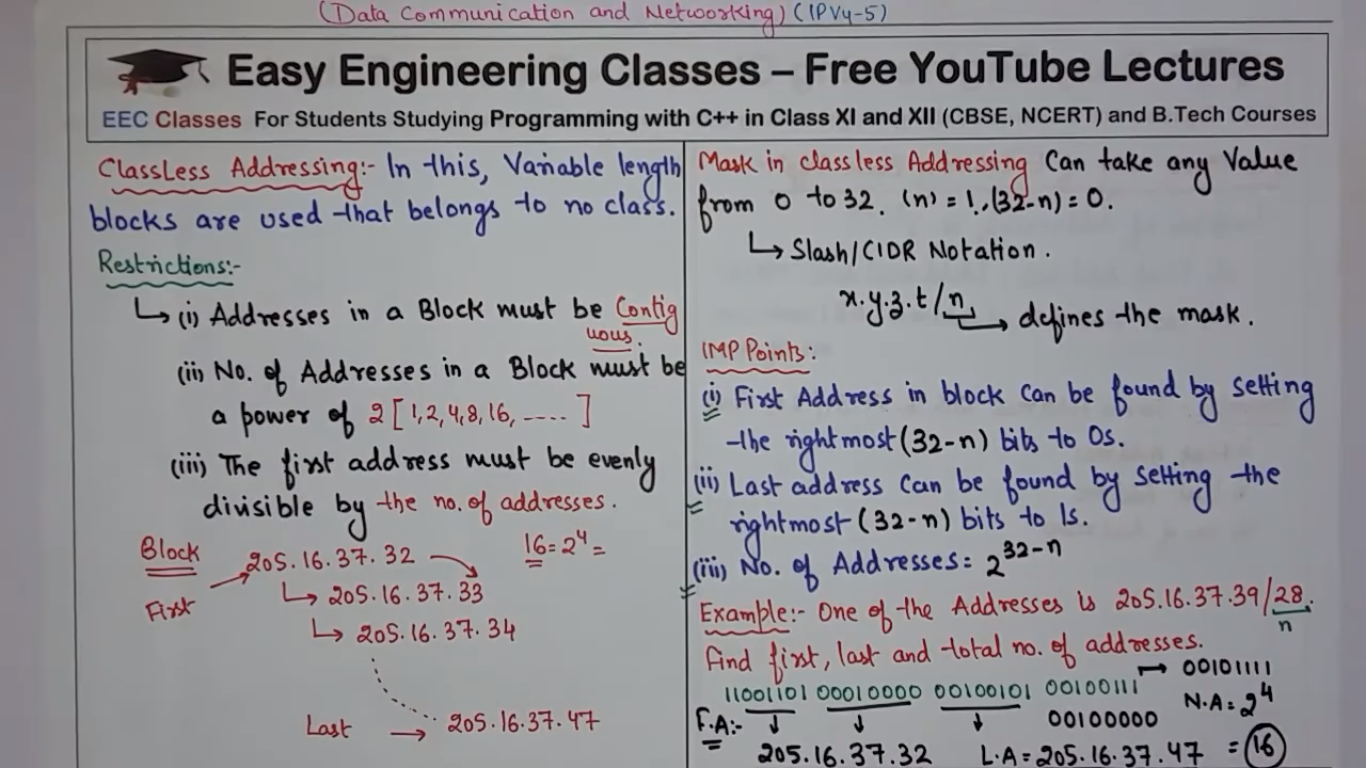 (Data Communication and Networking) (IPV4-5)
Easy Engineering Classes – Free YouTube Lectures
EEC Classes For Students Studying Programming with C++ in Class XI and XII (CBSE, NCERT) and B.Tech Courses
Classless Addressing:- In this, Variable length
blocks are used that belongs to no class.
Restrictions:-
↳ (i) Addresses in a Block must be Contig
uous.
(ii) No. of Addresses in a Block must be
a power of 2 [1,2,4,8,16, ----- ]
(iii) The first address must be evenly
divisible by the no. of addresses.
Block 205.16.37.32 16=2⁴=
First ↳ 205.16.37.33
↳ 205.16.37.34
Last → 205.16.37.47
Mask in classless Addressing Can take any Value
from 0 to 32. (n) = 1, (32-n) = 0.
↳ Slash/CIDR Notation.
x.y.z.t/n → defines the mask.
IMP Points:
(i) First Address in block can be found by setting
the rightmost (32-n) bits to 0s.
(ii) Last address can be found by setting the
rightmost (32-n) bits to 1s.
(iii) No. of Addresses = 2³²⁻ⁿ
Example:- One of the Addresses is 205.16.37.39/28.
n
find first, last and total no. of addresses.
→ 00101111
11001101 00010000 00100101 00100111
N.A = 2⁴
F.A:- ↓ ↓ ↓ 00100000
205.16.37.32 L.A = 205.16.37.47 = 16